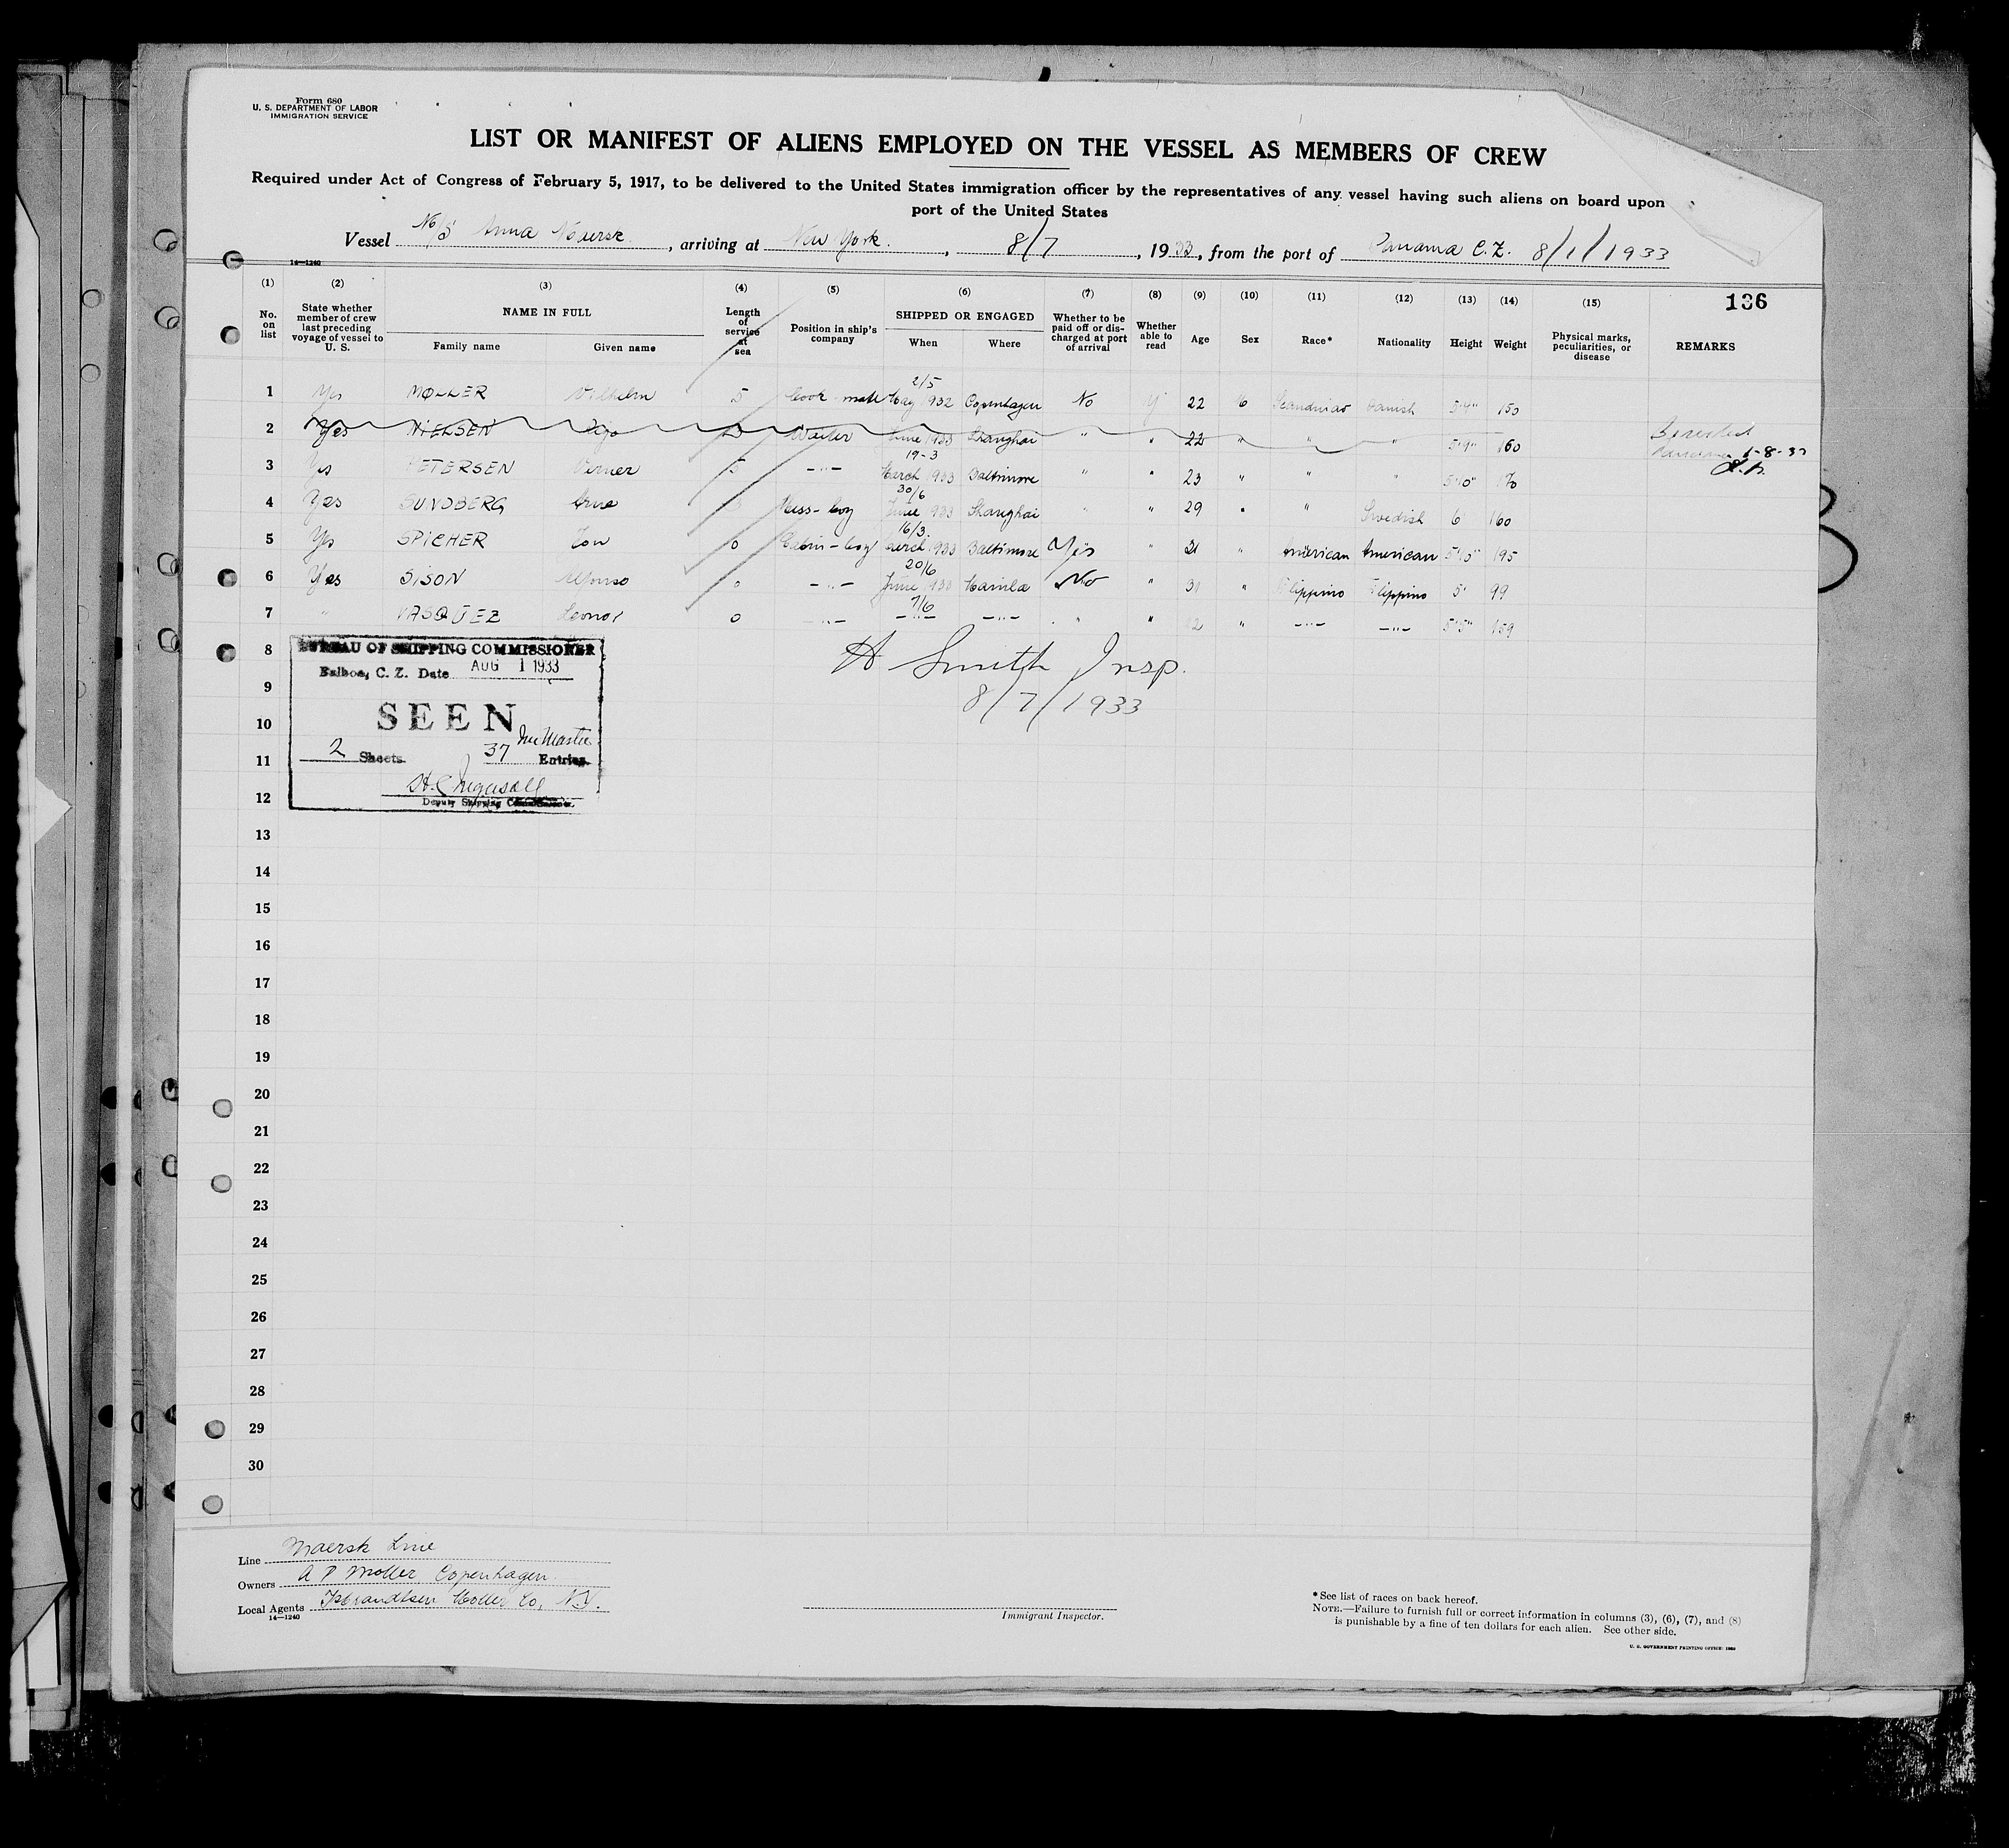 Form 680
U. S. DEPARTMENT OF LABOR
IMMIGRATION SERVICE
LIST OR MANIFEST OF ALIENS EMPLOYED ON THE VESSEL AS MEMBERS OF CREW
Required under Act of Congress of February 5, 1917, to be delivered to the United States immigration officer by the representatives of any vessel having such aliens on board upon
port of the United States
Vessel Anna Maersk, arriving at New York, 8/7, 1933, from the port of Panama C.Z. 8/1/1933
14—1240
136
(1) (2) (3) (4) (5) (6) (7) (8) (9) (10) (11) (12) (13) (14) (15)
No. on list State whether member of crew last preceding voyage of vessel to U. S. NAME IN FULL Family name Given name Length of service at sea Position in ship's company SHIPPED OR ENGAGED When Where Whether to be paid off or discharged at port of arrival Whether able to read Age Sex Race* Nationality Height Weight Physical marks, peculiarities, or disease REMARKS
2/5
1 Yes MØLLER Vilhelm 5 Cook-mate May 1932 Copenhagen No 22 Danish 150
2 Yes NIELSEN Waiter June 1933 Shanghai " " 22 " " " 5'9" 160
19-3
3 Yes PETERSEN Verner 5 —"— March 1933 Baltimore " " 23 " " " 5'10"
1-8-33
30/6
4 Yes SUNDBERG Arne Mess-boy June 1933 Shanghai " " 29 " " Swedish 6' 160
16/3
5 Yes SPICHER Tom 0 Cabin-boy March 1933 Baltimore Yes " 21 " American American 195
20/6
6 Yes SISON Alfonso 0 —"— June 1933 Manila No " " Filippino Filippino 5' 99
7/6
7 " VASQUEZ Leonor 0 —"— —"— —"— " " " —"— —"— 5'5" 159
8
9
10
11
12
13
14
15
16
17
18
19
20
21
22
23
24
25
26
27
28
29
30
BUREAU OF SHIPPING COMMISSIONER
Balboa, C. Z. Date AUG 1 1933
SEEN
2 Sheets 37 Entries
Deputy Shipping Commissioner.
H Smith Insp.
8/7/1933
Line Maersk Line
Owners A P Moller Copenhagen
Local Agents Isbrandtsen Moller Co, N.Y.
14—1240
Immigrant Inspector.
* See list of races on back hereof.
NOTE.—Failure to furnish full or correct information in columns (3), (6), (7), and (8)
is punishable by a fine of ten dollars for each alien. See other side.
U. S. GOVERNMENT PRINTING OFFICE: